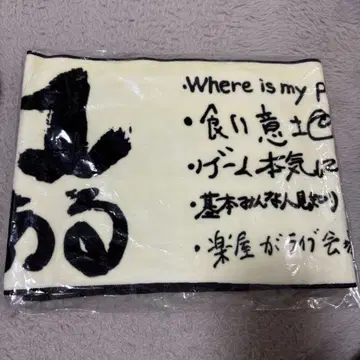 ・Where is my p
・食い意地
・ゲーム本気に
・基本みんな人見知り
・楽屋がライブ会